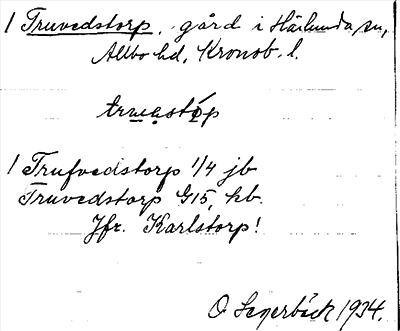 1 Truvedstorp, gård i Härlunda sn,
Allbo hd, Kronob. l.
1 Trufvedstorp 1/4 jb
Truvedstorp G15, kb.
Jfr. Karlstorp!
O Segerbäck 1934.